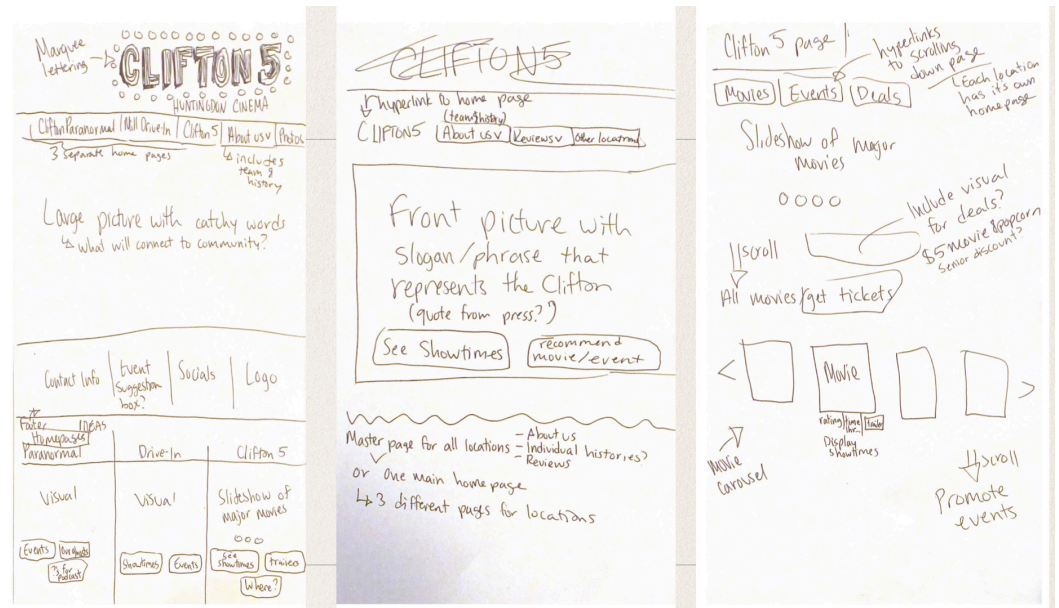 Marquee
lettering
CLIFTON 5
HUNTINGDON CINEMA
Clifton Paranormal
Mill Drive-In
Clifton 5
About us v
Photos
3 separate home pages
includes
team &
history
Large picture with catchy words
what will connect to community?
Contact Info
Event
Suggestion
box?
Socials
Logo
Footer
IDEAS
Homepages
Paranormal
Drive-In
Clifton 5
Visual
Visual
Slideshow of
major movies
Events
?s for
podcast
Showtimes
Events
see
showtimes
Where?
CLIFTON5
hyperlink to home page
(team&history)
CLIFTON5
About us v
Reviews v
Other locations
Front picture with
slogan/phrase that
represents the Clifton
(quote from press?)
See Showtimes
recommend
movie/event
Master page for all locations
- About us
- Individual histories?
- Reviews
or one main home page
3 different pages for locations
Clifton 5 page
hyperlinks
to scrolling
down page
Each location
has it's own
homepage
Movies
Events
Deals
Slideshow of major
movies
Include visual
for deals?
$5 movie & popcorn
senior discount?
scroll
All movies/get tickets
<
Movie
>
rating
time
hr...
Trailer
Display
showtimes
movie
carousel
scroll
Promote
events